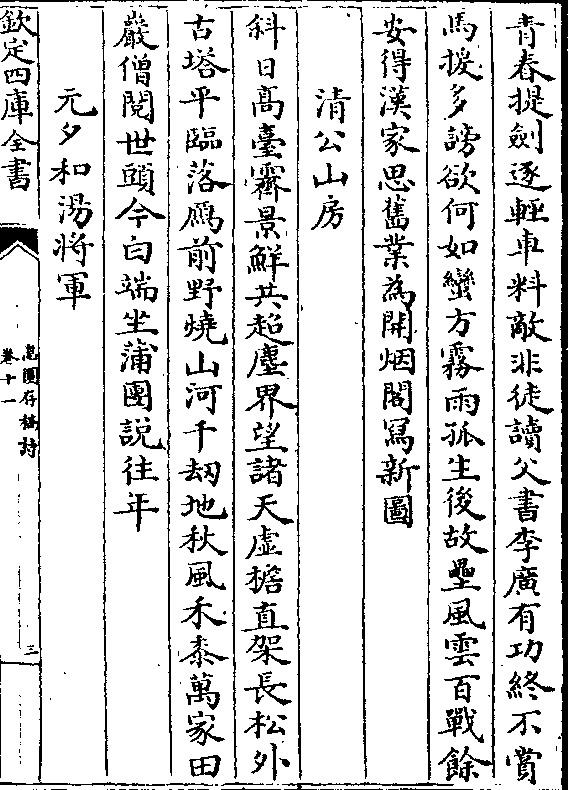 青春提劍逐輕車料敵非徒讀父書李廣有功終不賞
馬援多謗欲何如蠻方霧雨孤生後故壘風雲百戰餘
安得漢家思舊業為開烟閣寫新圖
清公山房
斜日髙臺霽景鮮共超塵界望諸天虛檐直架長松外
古塔平臨落鴈前野燒山河千刼地秋風禾黍萬家田
巖僧閱世頭今白端坐蒲團說往年
元夕和湯將軍
欽定四庫全書
息園存稿詩
卷十一
三